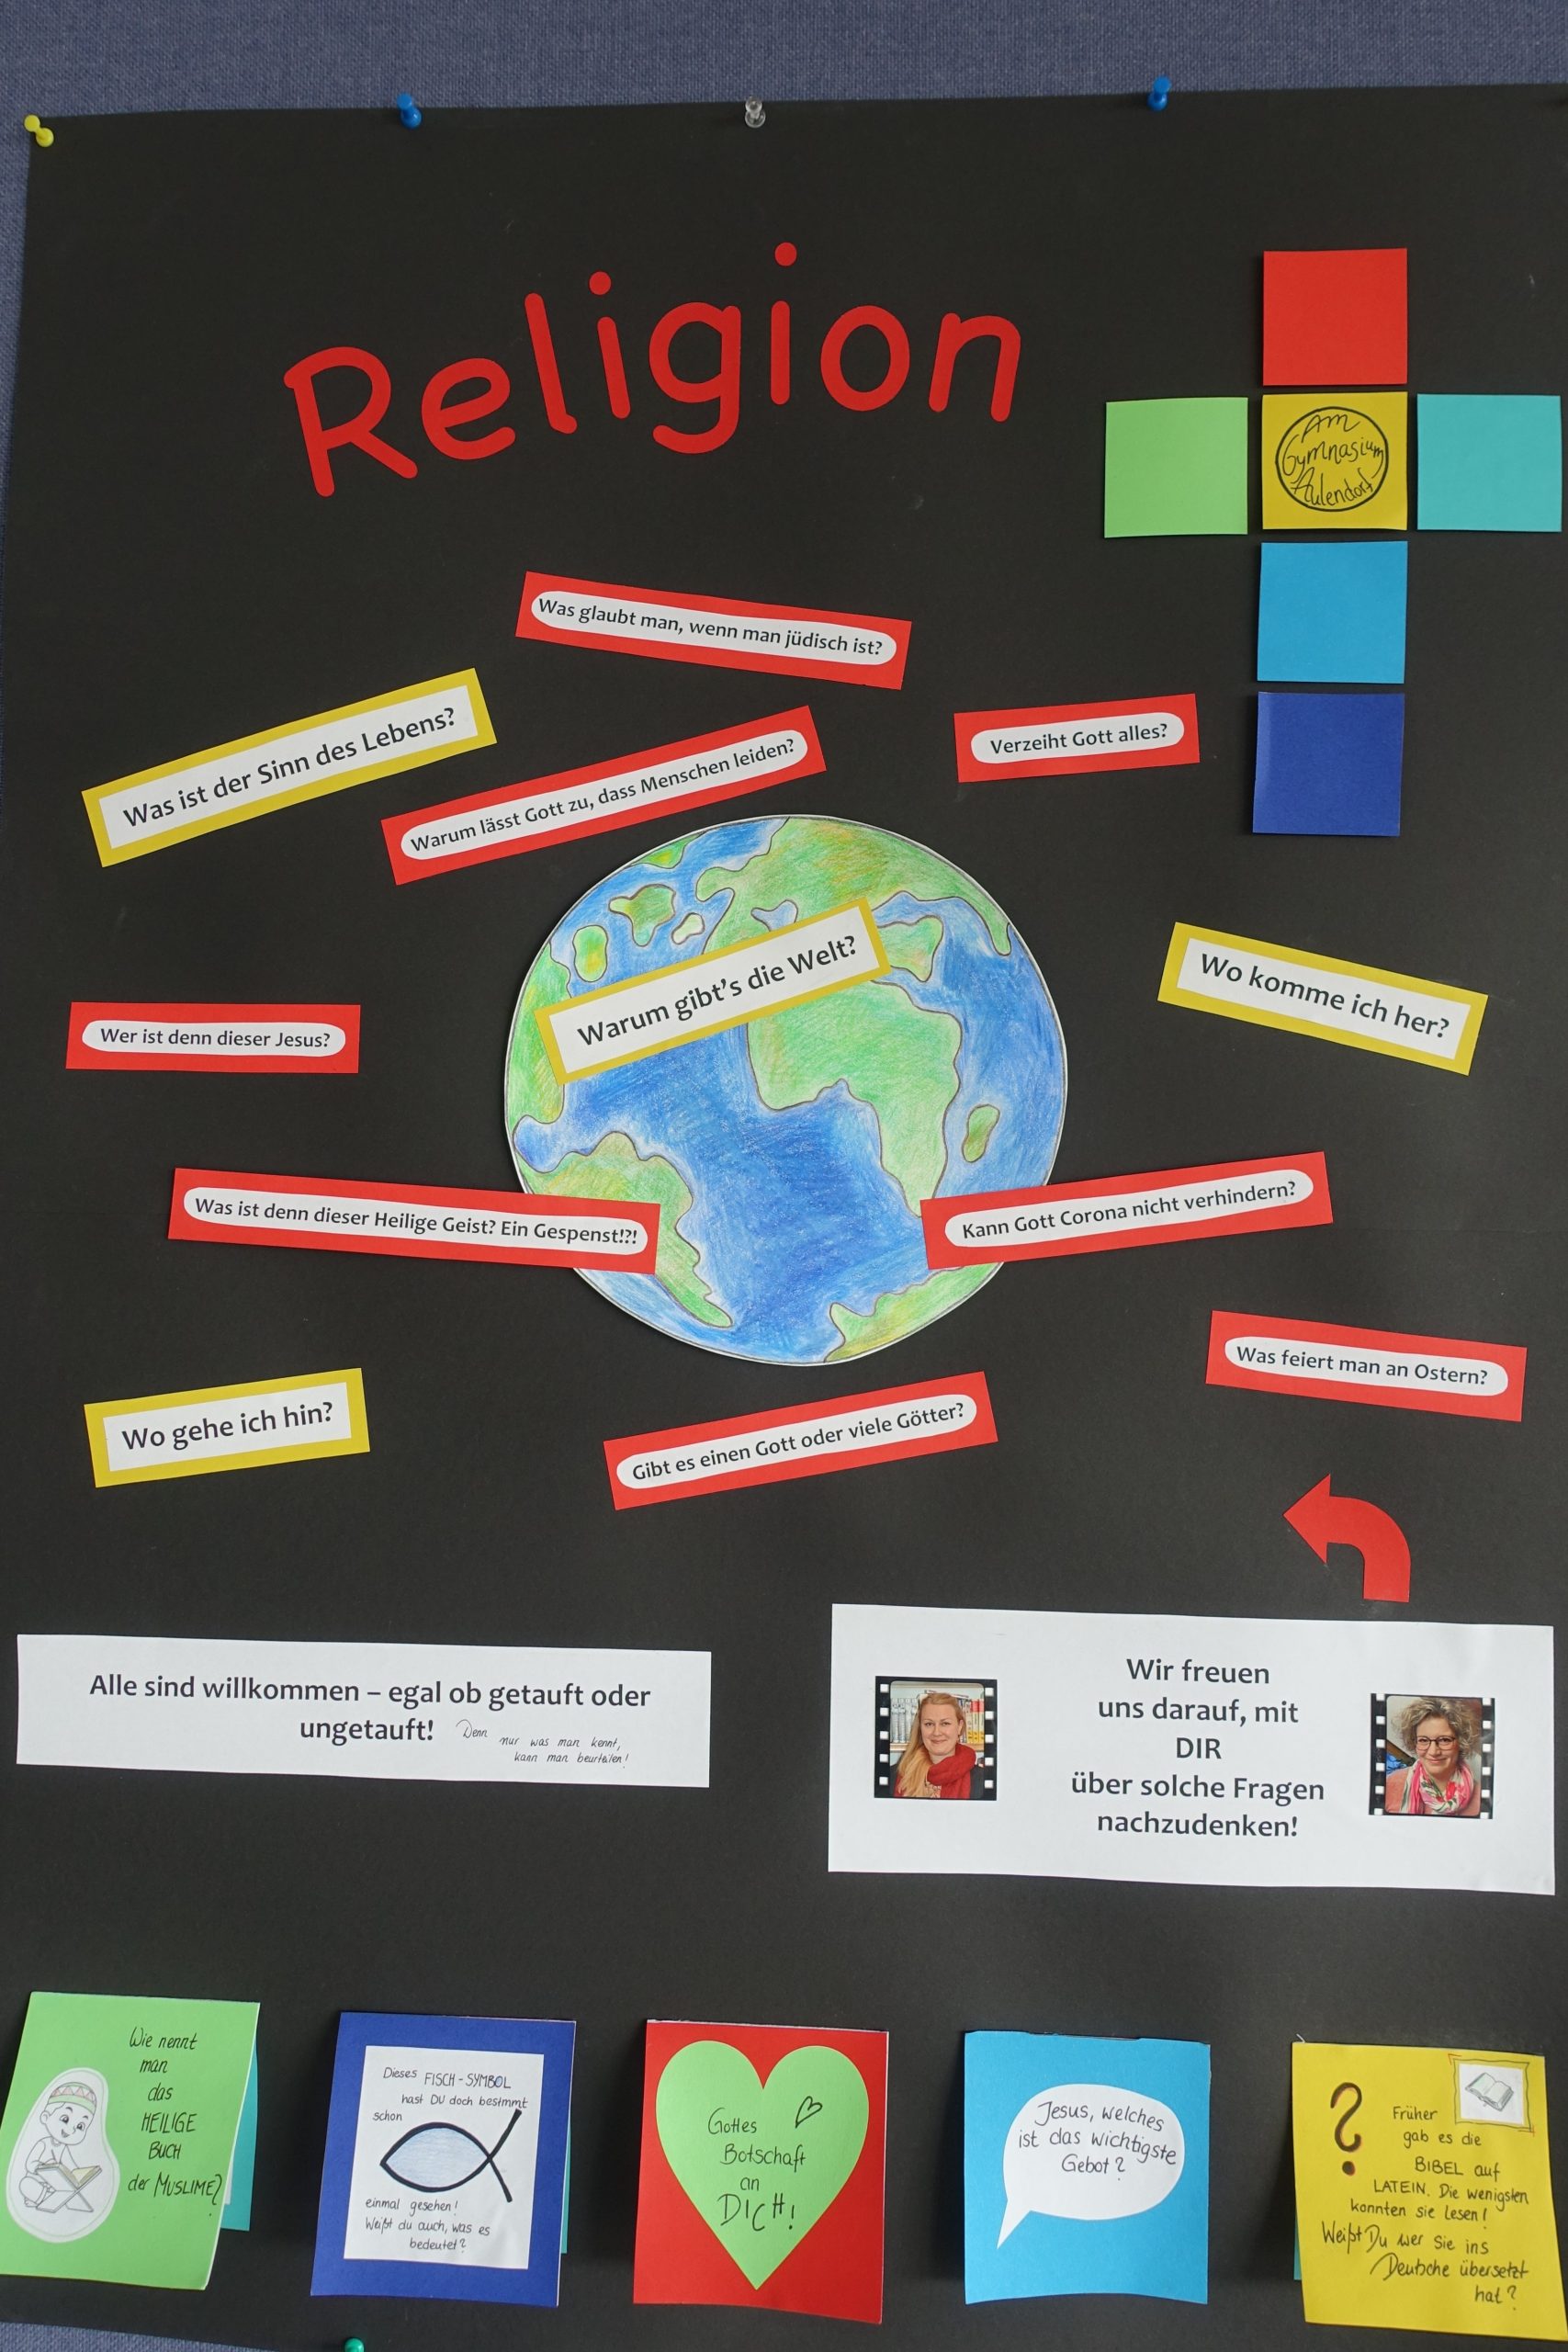 Religion
Am
Gymnasium
Aulendorf
Was glaubt man, wenn man jüdisch ist?
Was ist der Sinn des Lebens?
Warum lässt Gott zu, dass Menschen leiden?
Verzeiht Gott alles?
Warum gibt's die Welt?
Wo komme ich her?
Wer ist denn dieser Jesus?
Was ist denn dieser Heilige Geist? Ein Gespenst!?!
Kann Gott Corona nicht verhindern?
Was feiert man an Ostern?
Wo gehe ich hin?
Gibt es einen Gott oder viele Götter?
Alle sind willkommen – egal ob getauft oder
ungetauft! Denn nur was man kennt,
kann man beurteilen!
Wir freuen
uns darauf, mit
DIR
über solche Fragen
nachzudenken!
Wie nennt
man
das
HEILIGE
BUCH
der MUSLIME?
Dieses FISCH-SYMBOL
hast DU doch bestimmt
schon
einmal gesehen!
Weißt du auch, was es
bedeutet?
Gottes
Botschaft
an
DICH!
Jesus, welches
ist das wichtigste
Gebot?
?
Früher
gab es die
BIBEL auf
LATEIN. Die wenigsten
konnten sie lesen!
Weißt Du wer Sie ins
Deutsche übersetzt
hat?